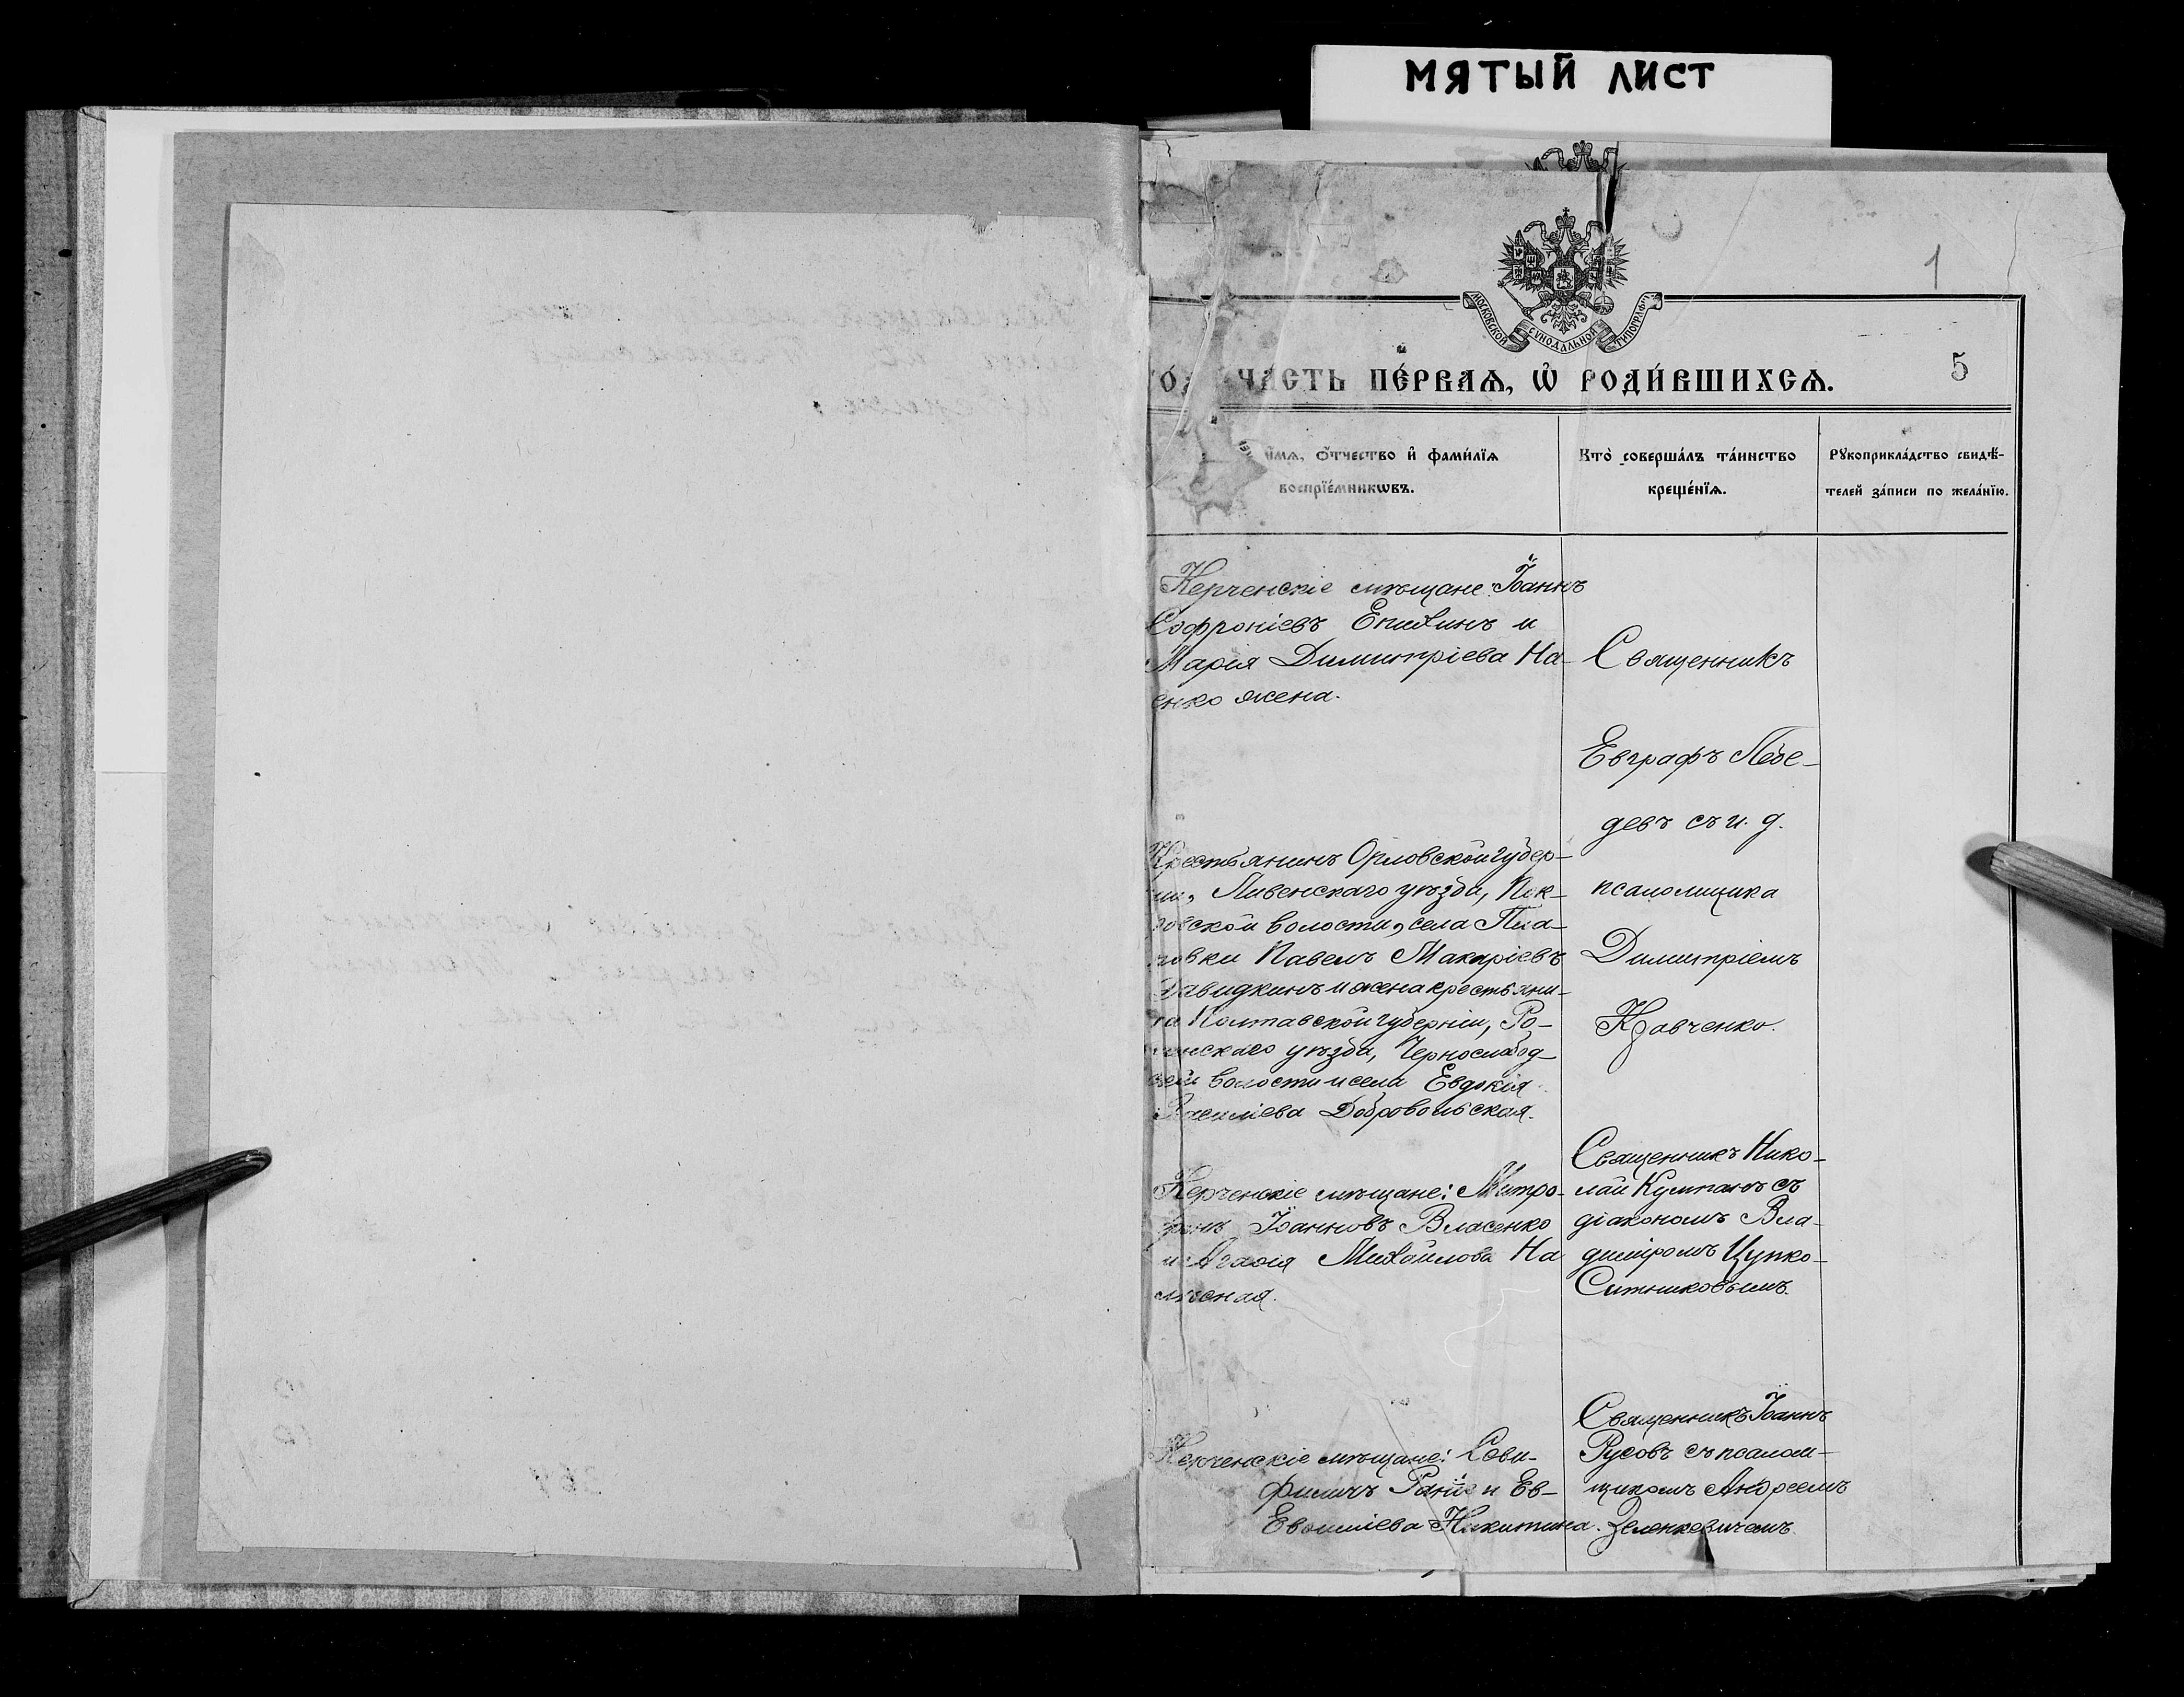 МЯТЫЙ ЛИСТ
1
МОСКОВСКОЙ СѴНОДАЛЬНОЙ ТИПОГРАФІИ
ЧА́СТЬ ПЕ́РВАѦ, Ѡ҆ РОДИ́ВШИХСѦ.
5
и҆́мѧ, ѻ҆́тчество и҆ фами́лїѧ
воспрїе́мникѡвъ.
Кто̀ соверша́лъ та́инство
креще́нїѧ.
Рꙋкоприкла́дство свидѣ́-
телей за́писи по жела́нїю.
Керченскіе мѣщане: Іоаннъ
Софроніевъ Епихинъ и
Марія Димитріева На-
енко жена.
Священникъ
Евграфъ Лебе-
девъ съ и. д.
псаломщика
Димитріемъ
Кравченко.
Крестьянинъ Орловской губер-
Ливенскаго уѣзда,
волости, села
Павелъ Макаріевъ
Давидкинъ и жена крестьяни-
на Полтавской губерніи, Ро-
менскаго уѣзда, Чернослобод-
ской волости и села Евдокія
Василіева Добровольская.
Керченскіе мѣщане: Митро-
фанъ Іоанновъ Власенко
и Агафія Михайлова На
Священникъ Нико-
лай Кумпанъ съ
діакономъ Вла-
диміромъ Цупко-
Ситниковымъ.
Керченскіе мѣщане:
и Ев-
Никитина.
Священникъ Іоаннъ
Русовъ съ псалом-
щикомъ Андреемъ
Зеленкевичемъ.